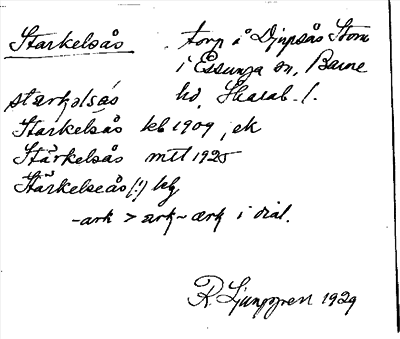 Starkelsås . torp å Djupsås Storn
i Essunga sn, Barne
stærkəlsås hd, Skarab. l.
Starkelsås kb 1909, ek
Stärkelsås mtl 1925
Stärkelseås (!) kg
-ark > ark ~ ærk i dial.
R. Ljunggren 1929